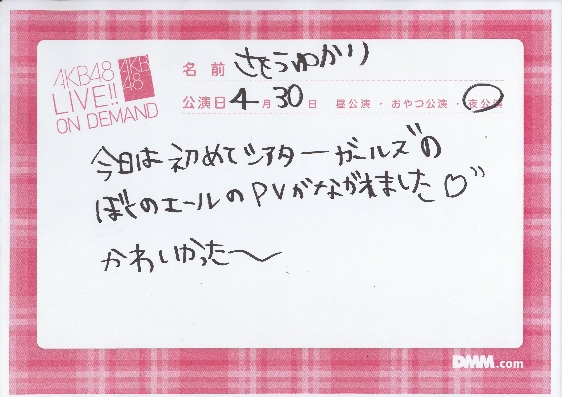 AKB48
LIVE!!
ON DEMAND
AKB
48
名前 さとうゆかり
公演日 4月30日 昼公演・おやつ公演・夜公演
今日は初めてシアターガールズの
ぼくのエールのPVがながれました♡”
かわいかった〜
DMM.com